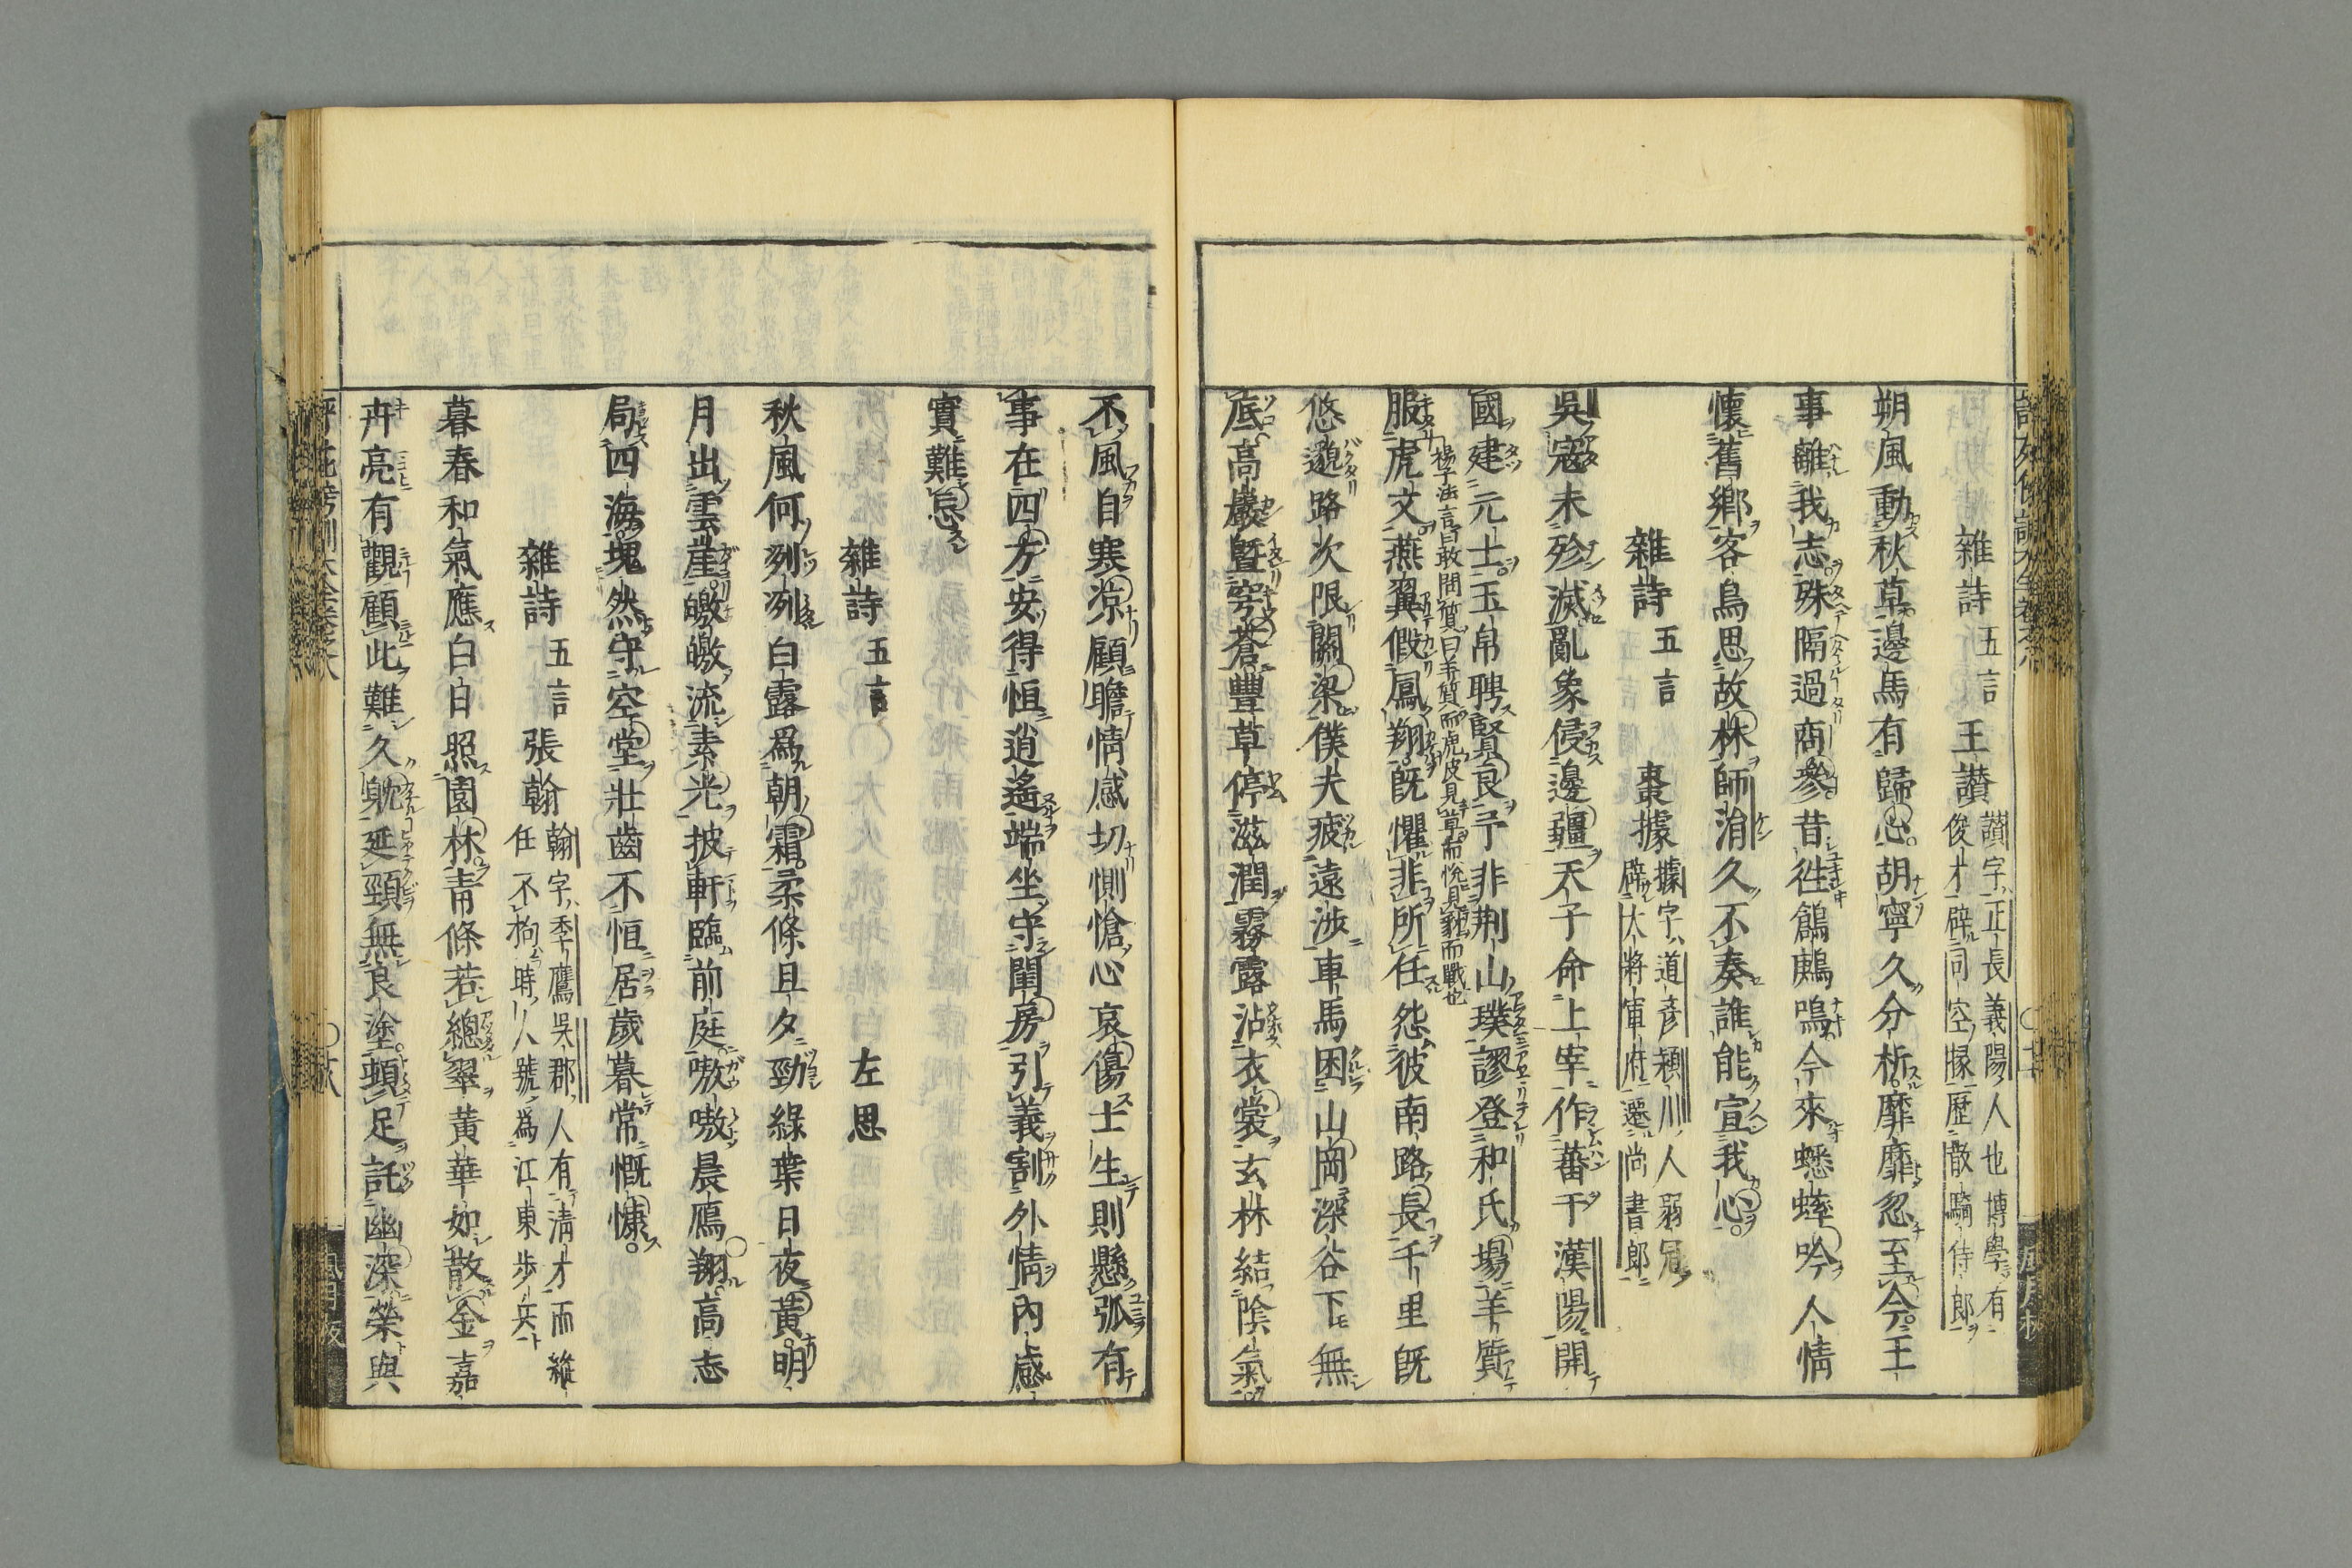 雜詩 五言 王讃 讃字正長義陽人也博學有
俊才辟司空掾歷散騎侍郎
朔風動秋草邊馬有歸心胡寧久分析靡靡忽至今王
事離我志殊隔過商參昔徃鶬鶊鳴今來蟋蟀吟人情
懷舊鄉客鳥思故林師涓久不奏誰能宣我心
雜詩 五言 棗據 據字道彥穎川人弱冠
辟大將軍府遷尚書郎
吳寇未殄滅亂象侵邊疆天子命上宰作蕃于漢陽開
國建元士玉帛聘賢良予非荆山璞謬登和氏場羊質
楊子法言曰敢問質曰羊質而虎皮見草而悅見豺而戰也
服虎文燕翼假鳳翔旣懼非所任怨彼南路長千里旣
悠邈路次限關梁僕夫疲遠涉車馬困山岡深谷下無
底高巖曁穹蒼豐草停滋潤霧露沾衣裳玄林結陰氣
不風自寒凉顧瞻情感切惻愴心哀傷士生則懸弧有
事在四方安得恒逍遙端坐守閨房引義割外情內感
實難忘
雜詩 五言 左思
秋風何冽冽白露爲朝霜柔條旦夕勁綠葉日夜黃明
月出雲崖皦皦流素光披軒臨前庭嗷嗷晨鴈翔高志
局四海塊然守空堂壯齒不恒居歲暮常慨慷
雜詩 五言 張翰 翰字季鷹吳郡人有淸才而縱
任不拘時人號爲江東步兵
暮春和氣應白日照園林靑條若總翠黃華如散金嘉
卉亮有觀顧此難久躭延頸無良塗頓足託幽深榮與